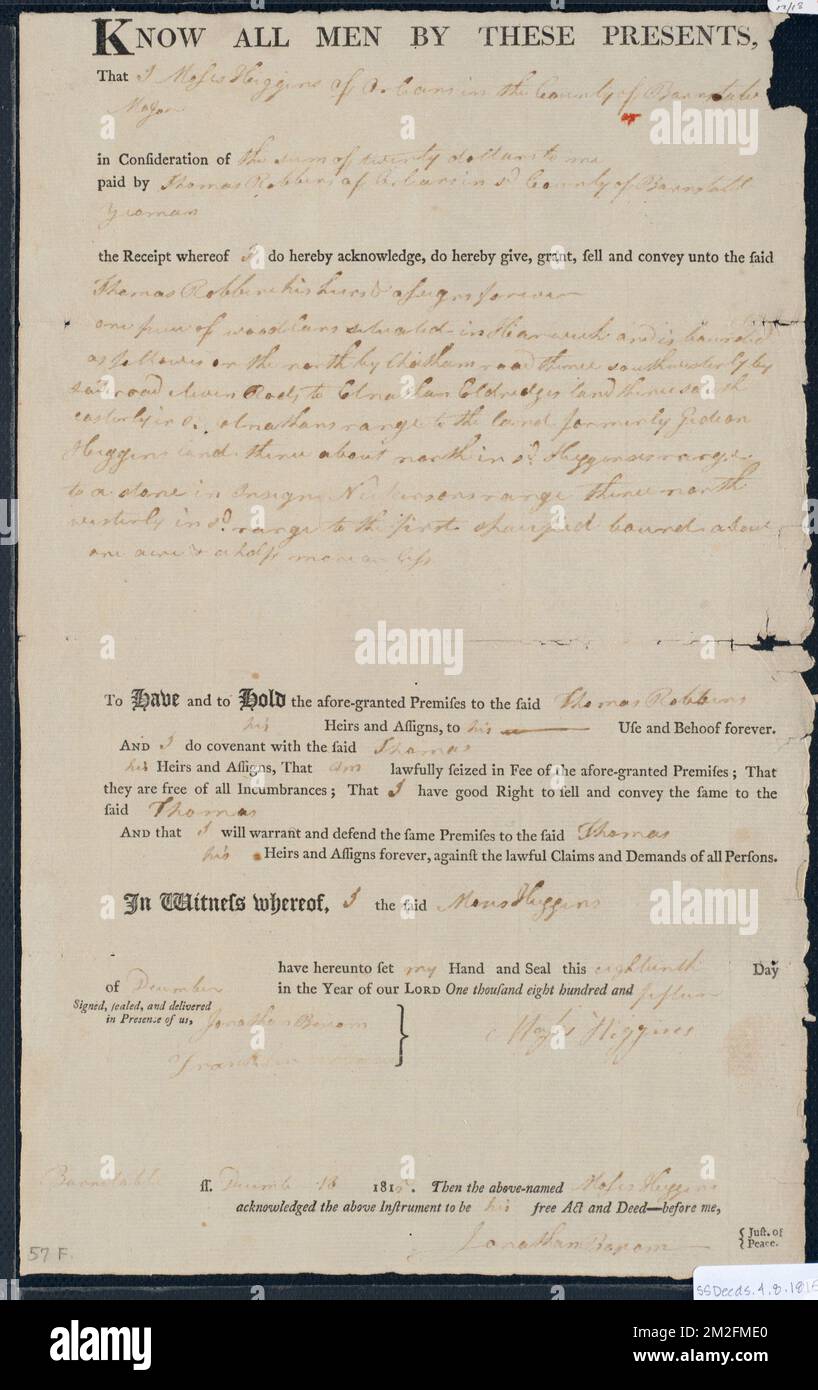 KNOW ALL MEN BY THESE PRESENTS,
That I Moses Higgins of Orleans in the County of Barnstable
in Conſideration of the sum of twenty dollars to me
paid by Thomas Robbins of Orleans in sd County of Barnstable
Yeoman
the Receipt whereof I do hereby acknowledge, do hereby give, grant, ſell and convey unto the ſaid
Thomas Robbins his heirs & aſsigns forever
one piece of woodland situated in Harwich and is bounded
as follows on the north by Chatham road thence southwesterly by
said road eleven Rods to Elnathan Eldredges land thence south
easterly in sd Elnathans range to the land formerly Gideon
Higgins land thence about north in sd Higginses range
to a stone in Nickersons range thence north
westerly in sd range to the first bound about
one acre & a half more or leſs
To Have and to Hold the afore-granted Premiſes to the ſaid Thomas Robbins
his Heirs and Aſſigns, to his Uſe and Behoof forever.
AND I do covenant with the ſaid Thomas
his Heirs and Aſſigns, That am lawfully ſeized in Fee of the afore-granted Premiſes; That
they are free of all Incumbrances; That I have good Right to ſell and convey the ſame to the
ſaid Thomas
AND that I will warrant and defend the ſame Premiſes to the ſaid Thomas
his Heirs and Aſſigns forever, againſt the lawful Claims and Demands of all Perſons.
In Witneſs whereof, I the ſaid Moses Higgins
have hereunto ſet my Hand and Seal this eighteenth Day
of December in the Year of our LORD One thouſand eight hundred and
Signed, ſealed, and delivered
in Presence of us,
Jonathan
Moses Higgins
Franklin
Barnstable ſſ. December 18 181 . Then the above-named Moses Higgins
acknowledged the above Inſtrument to be his free Act and Deed—before me,
Jonathan
{ Juſt. of
Peace.
57 F.
SSDeeds.4.8.1815
alamy
alamy
Image ID: 2M2FME0
www.alamy.com